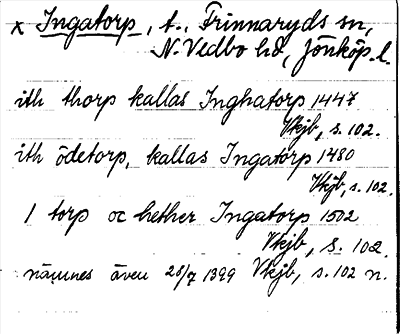 x Ingatorp, t., Frinnaryds sn,
N. Vedbo hd, Jönköp. l.
ith thorp kallas Inghatorp 1447
Vkjb, s. 102.
ith ödetorp, kallas Ingatorp 1480
Vkjb, s. 102.
1 torp oc hether Ingatorp 1502
Vkjb, s. 102.
nämnes även 28/7 1399 Vkjb, s. 102 n.